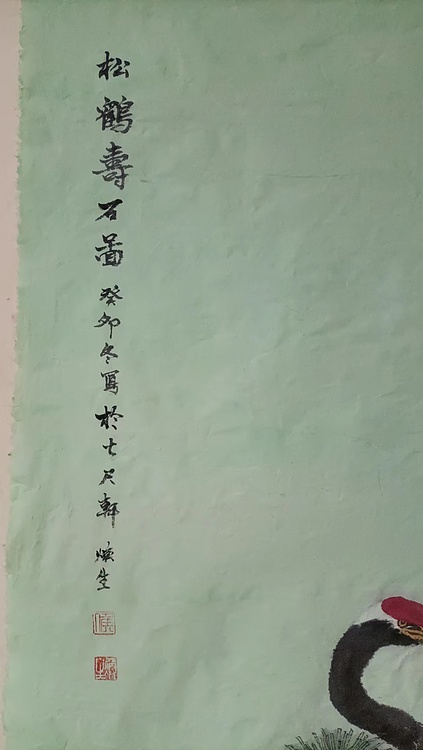 松鶴壽石啚癸卯冬寫於七尺軒煥生